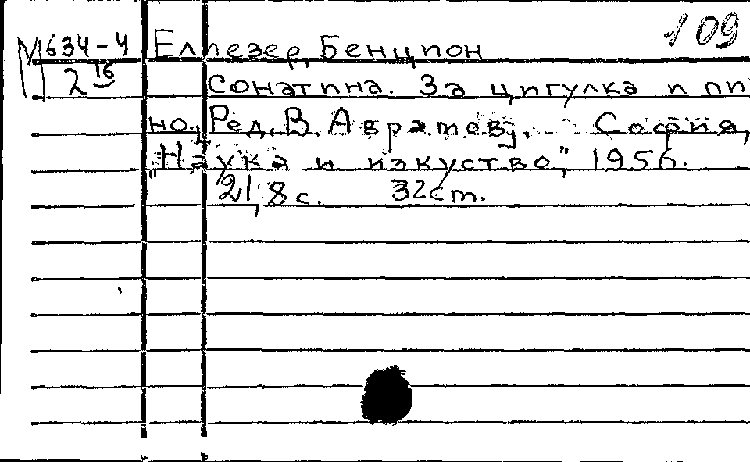 109
М634-4 Елиезер, Бенцион
2 16 Сонатина. За цигулка и пи
но, Ред. В. Аврамов, София,
"Наука и изкуство", 1956.
21, 8 с. 32 ст.